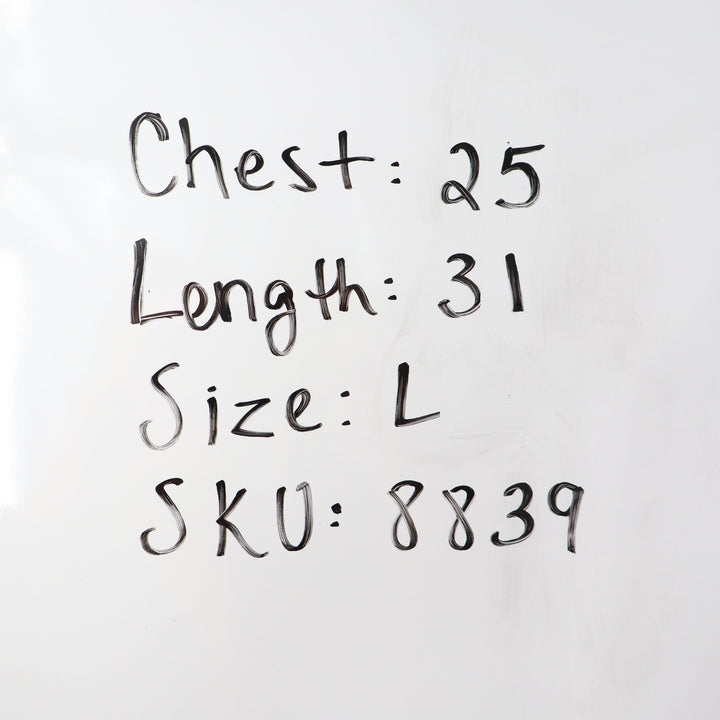 Chest: 25
Length: 31
Size: L
SKU: 8839